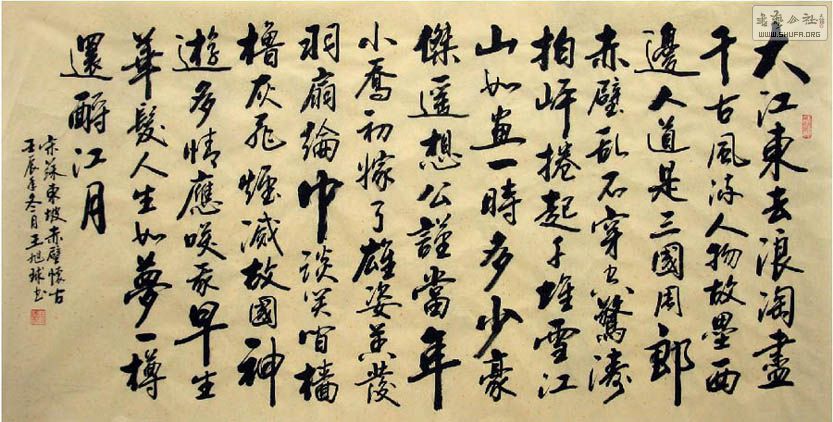 大江東去浪淘盡
千古風流人物故壘西
邊人道是三國周郎
赤壁乱石穿空驚濤
拍岸捲起千堆雪江
山如畫一時多少豪
傑遥想公謹當年
小喬初嫁了雄姿英發
羽扇綸巾談笑间檣
櫓灰飛煙滅故國神
遊多情應咲我早生
華髮人生如夢一樽
還酹江月
宋蘇東坡赤壁懷古
壬辰年冬月王旭球书
書法公社
WWW.SHUFA.ORG